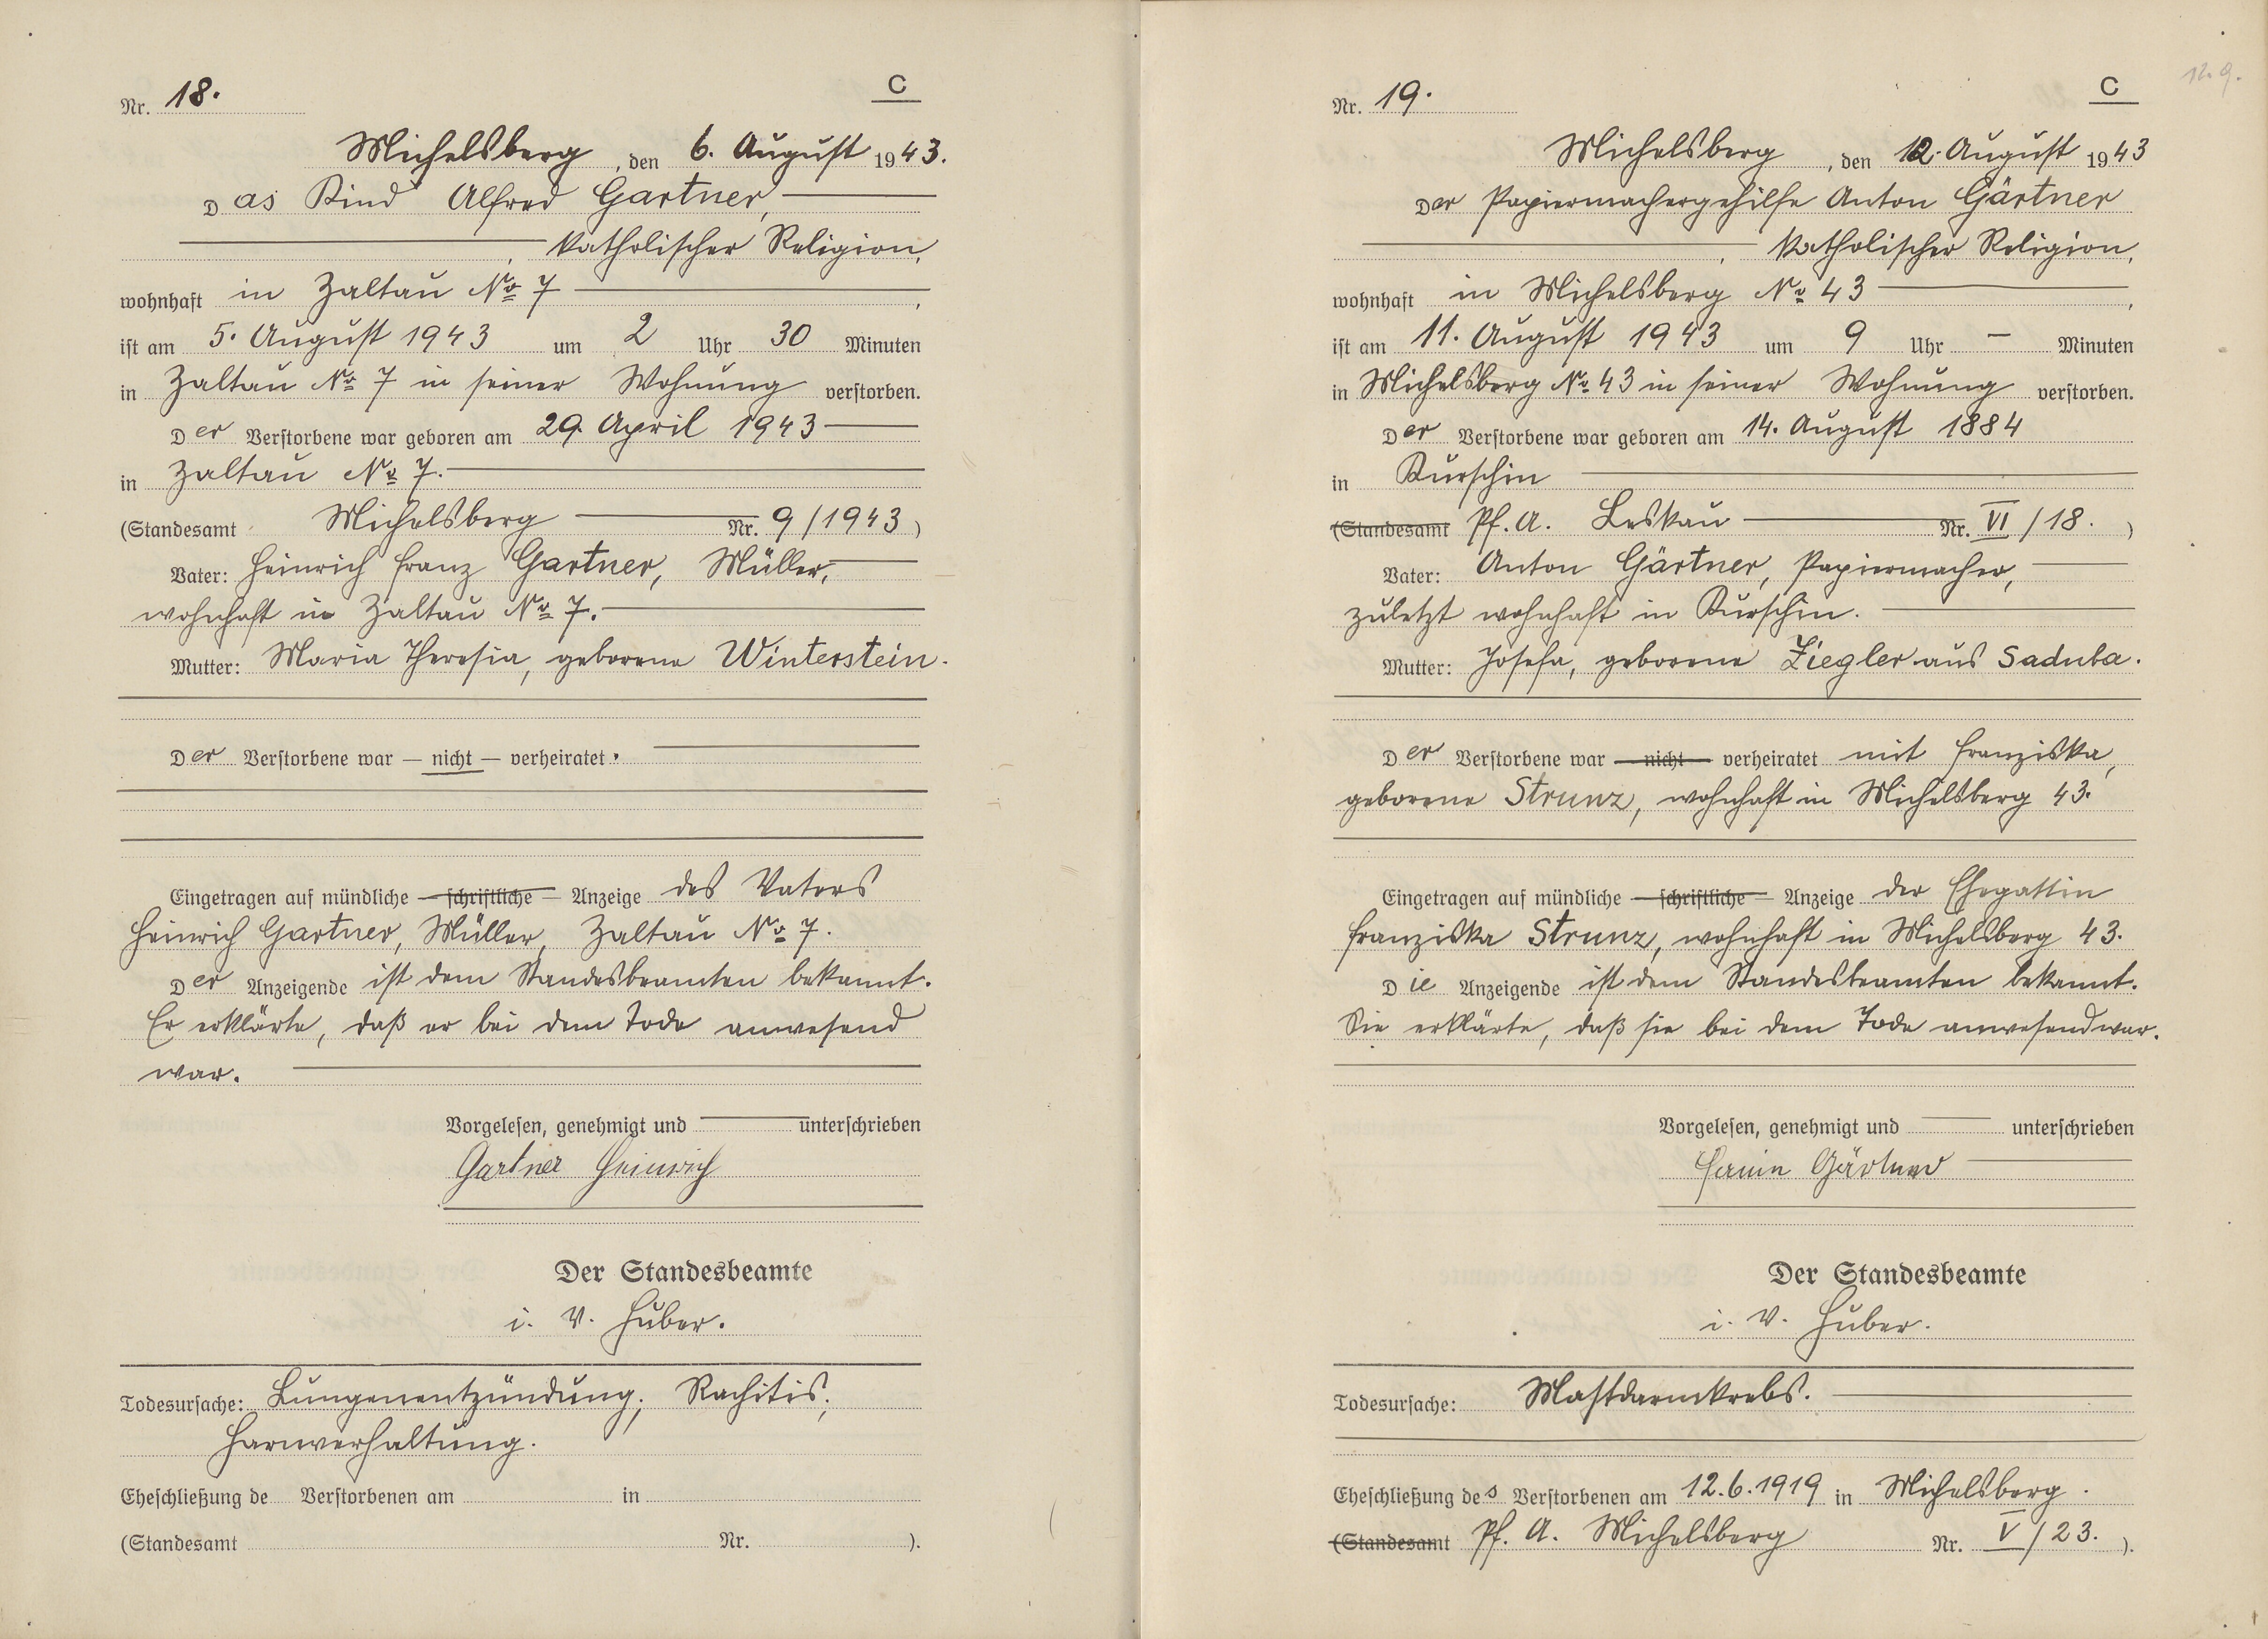 Nr. 18.
C
Michelsberg, den 6. August 1943.
Das Kind Alfred Gartner,
katholischer Religion,
wohnhaft in Zaltau No 7,
ist am 5. August 1943 um 2 Uhr 30 Minuten
in Zaltau No 7 in seiner Wohnung verstorben.
Der Verstorbene war geboren am 29. April 1943
in Zaltau No 7.
(Standesamt Michelsberg Nr. 9/1943)
Vater: Heinrich Franz Gartner, Müller,
wohnhaft in Zaltau No 7.
Mutter: Maria Theresia, geborene Winterstein.
Der Verstorbene war — nicht — verheiratet.
Eingetragen auf mündliche — schriftliche — Anzeige des Vaters
Heinrich Gartner, Müller, Zaltau No 7.
Der Anzeigende ist dem Standesbeamten bekannt.
Er erklärte, daß er bei dem Tode anwesend
war.
Vorgelesen, genehmigt und unterschrieben
Gartner Heinrich
Der Standesbeamte
i. V. Huber.
Todesursache: Lungenentzündung; Rachitis;
Harnverhaltung.
Eheschließung de Verstorbenen am in
(Standesamt Nr. ).
12.9.
Nr. 19.
C
Michelsberg, den 12. August 1943
Der Papiermachergehilfe Anton Gärtner
, katholischer Religion,
wohnhaft in Michelsberg No 43,
ist am 11. August 1943 um 9 Uhr – Minuten
in Michelsberg No 43 in seiner Wohnung verstorben.
Der Verstorbene war geboren am 14. August 1884
in Kurschin
(Standesamt Pf. A. Leskau Nr. VI/18. )
Vater: Anton Gärtner, Papiermacher,
zuletzt wohnhaft in Kurschin.
Mutter: Josefa, geborene Ziegler aus Saduba.
Der Verstorbene war — nicht — verheiratet mit Franziska,
geborene Strunz, wohnhaft in Michelsberg 43.
Eingetragen auf mündliche — schriftliche — Anzeige der Ehegattin
Franziska Strunz, wohnhaft in Michelsberg 43.
Die Anzeigende ist dem Standesbeamten bekannt.
Sie erklärte, daß sie bei dem Tode anwesend war.
Vorgelesen, genehmigt und unterschrieben
Gärtner
Der Standesbeamte
i. V. Huber.
Todesursache: Mastdarmkrebs.
Eheschließung des Verstorbenen am 12.6.1919 in Michelsberg.
(Standesamt Pf. A. Michelsberg Nr. V/23. ).